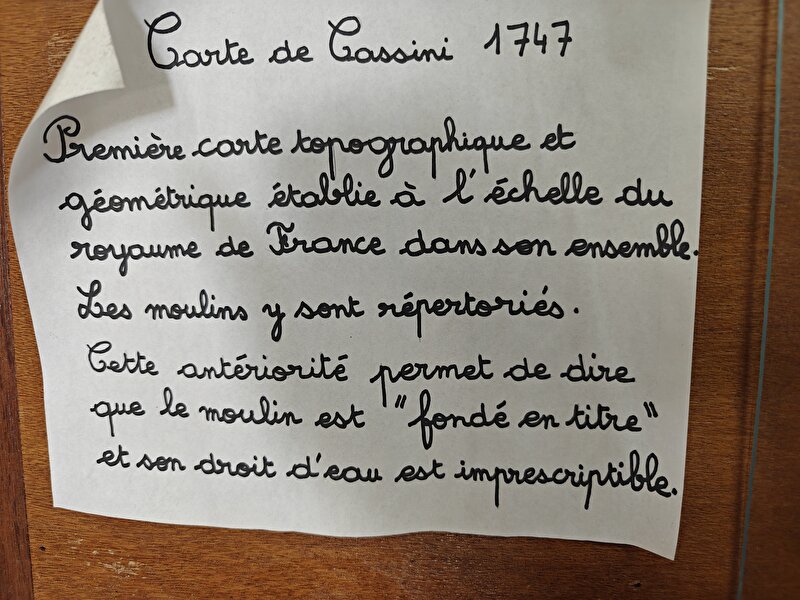 Carte de Cassini 1747
Première carte topographique et
géométrique établie à l'échelle du
royaume de France dans son ensemble.
Les moulins y sont répertoriés.
Cette antériorité permet de dire
que le moulin est "fondé en titre"
et son droit d'eau est imprescriptible.